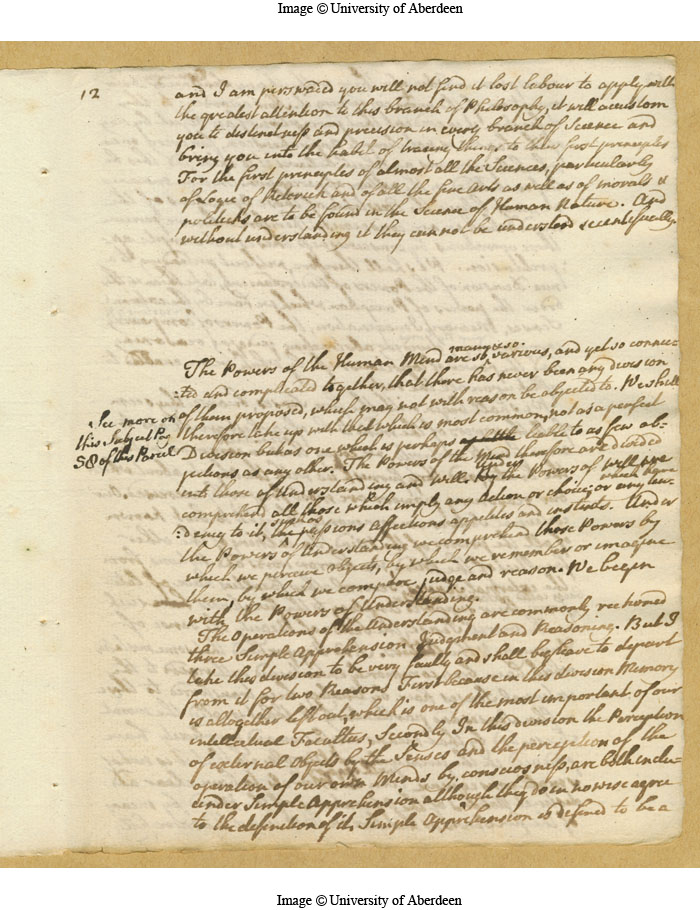 Image © University of Aberdeen
12
and I am perswaded you will not find it lost labour to apply with
the greatest attention to this branch of Philosophy, it will accustom
you to distinctness and precision in every branch of Science and
bring you into the habit of tracing things to their first principles
For the first principles of almost all the Sciences, particularly
of Logic of Retorick and of all the fine Arts as well as of morals &
politicks are to be found in the Science of Human Nature. And
without understanding it they cannot be understood scientifically.
many & so
The Powers of the Human Mind are so various, and yet so connec-
:ted and complicated together, that there has never been any division
of them proposed, which may not with reason be objected to. We shall
See more on
this Subject Pag
58 of this Parcel
therefore take up with that which is most common, not as a perfect
Division but as one which is perhaps liable to as few ob-
jections as any other. The Powers of the Mind therefore are divided
into those of Understanding and Will. Under the Powers of will we
comprehend all those which imply any Action or choice, or which have any ten-
:dency to it, such as the passions affections appetites and instincts. Under
the Powers of Understanding we comprehend those Powers by
which we perceive objects, by which we remember or imagine
them, by which we compare judge and reason. We begin
with the Powers of Understanding.
The Operations of the Understanding are commonly reckoned
three Simple Apprehension Judgment and Reasoning. But I
take this division to be very faulty and shall beg leave to depart
from it for two Reasons First because in this division Memory
is altogether left out, which is one of the most important of our
intellectual Faculties, Secondly In this division the Perception
of external Objects by the Senses and the perception of the
operation of our own Minds by consciosness, are both inclu-
under Simple Apprehension although they do in no wise agree
to the definition of it. Simple Apprehension is defined to be a
Image © University of Aberdeen